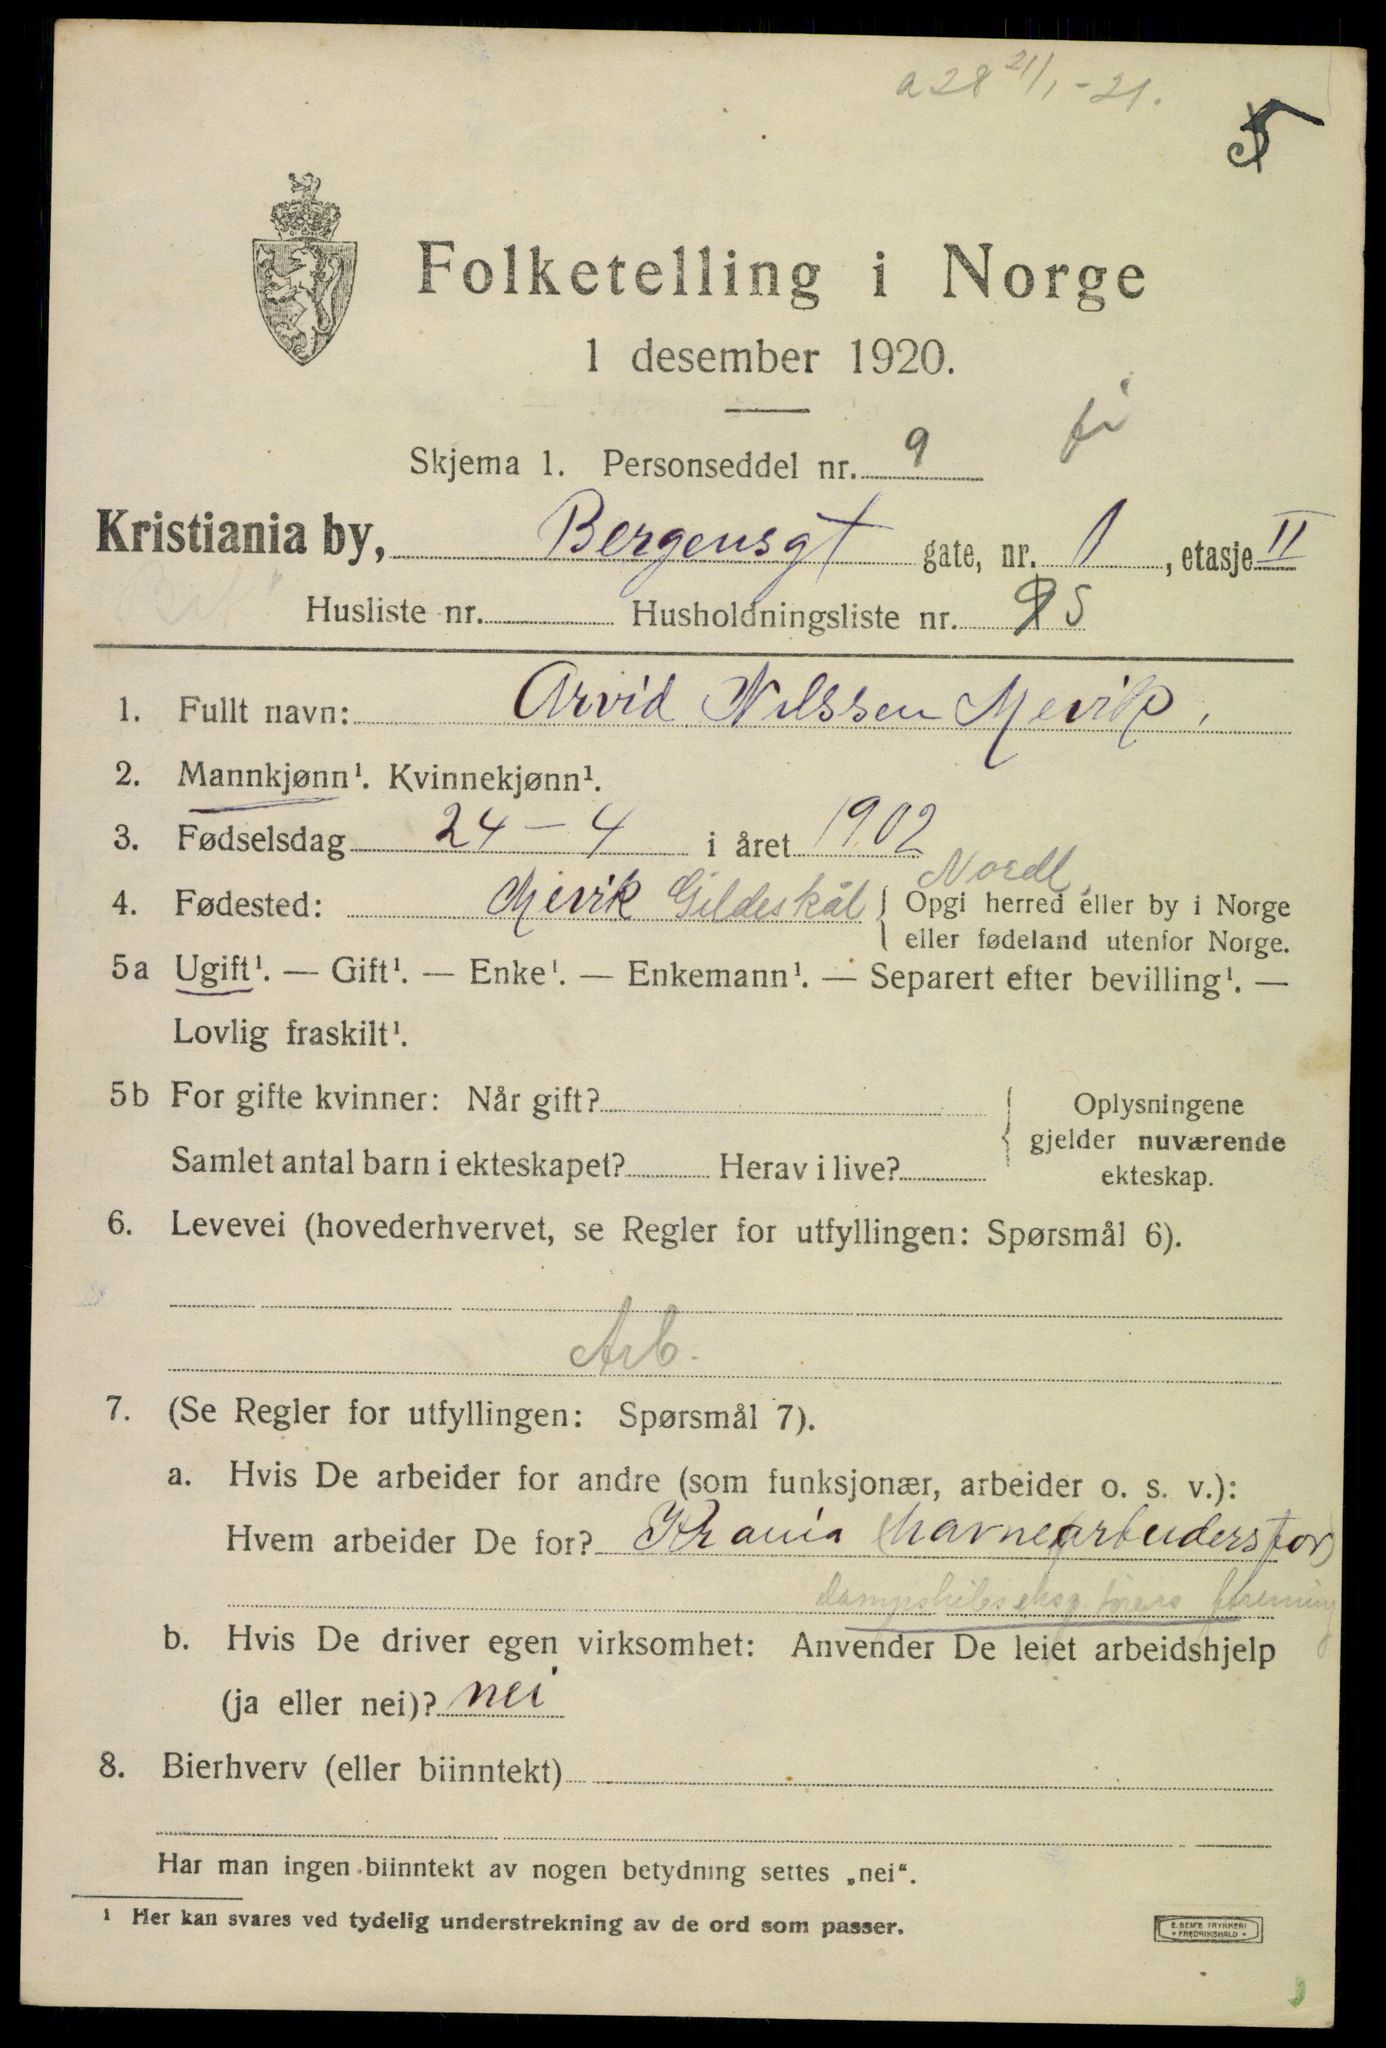 a 28 21/1 - 21.
5
Folketelling i Norge
1 desember 1920.
Skjema 1. Personseddel nr. 9
Kristiania by, Bergensgt gate, nr. 1, etasje II
Husliste nr. Husholdningsliste nr. 5
1. Fullt navn: Arvid Nilssen Mevik.
2. Mannkjønn¹. Kvinnekjønn¹.
3. Fødselsdag 24 – 4 i året 1902
Nordl.
4. Fødested: Mevik Gildeskål { Opgi herred eller by i Norge
eller fødeland utenfor Norge.
5a Ugift¹. — Gift¹. — Enke¹. — Enkemann¹. — Separert efter bevilling¹. —
Lovlig fraskilt¹.
5b For gifte kvinner: Når gift? { Oplysningene
gjelder nuværende
Samlet antal barn i ekteskapet? Herav i live?
ekteskap.
6. Levevei (hovederhvervet, se Regler for utfyllingen: Spørsmål 6).
Arb.
7. (Se Regler for utfyllingen: Spørsmål 7).
a. Hvis De arbeider for andre (som funksjonær, arbeider o. s. v.):
Hvem arbeider De for? Krania (havnearbeidersfor)
forening
b. Hvis De driver egen virksomhet: Anvender De leiet arbeidshjelp
(ja eller nei)? nei
8. Bierhverv (eller biinntekt)
Har man ingen biinntekt av nogen betydning settes „nei“.
¹ Her kan svares ved tydelig understrekning av de ord som passer.
E. SEM'S TRYKKERI
* FREDRIKSHALD *